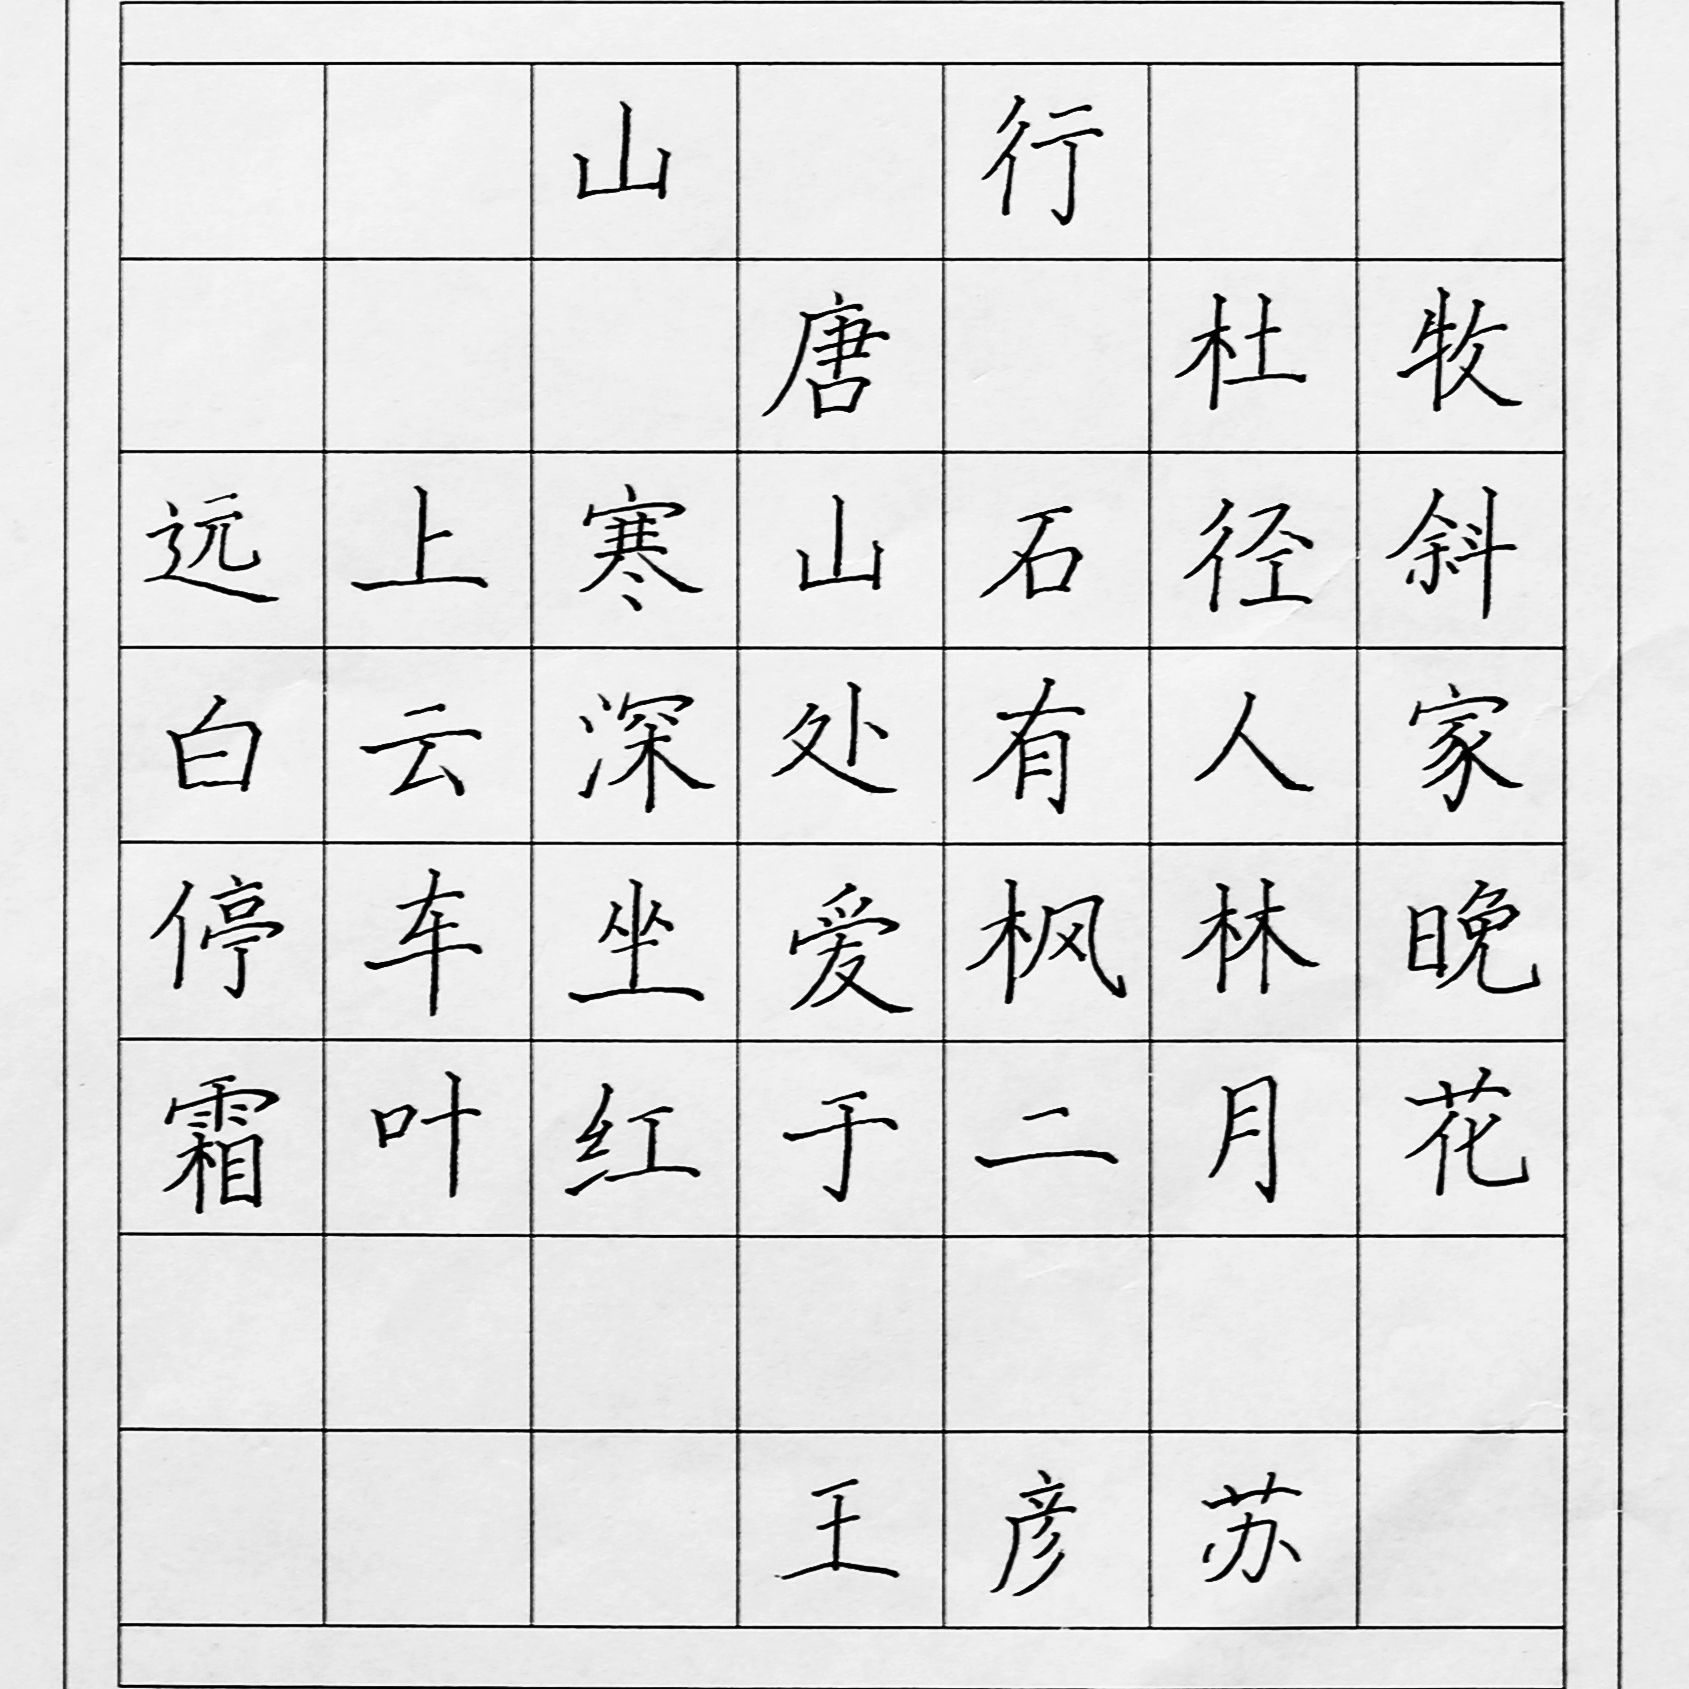 山行
唐 杜牧
远上寒山石径斜
白云深处有人家
停车坐爱枫林晚
霜叶红于二月花
王彦苏